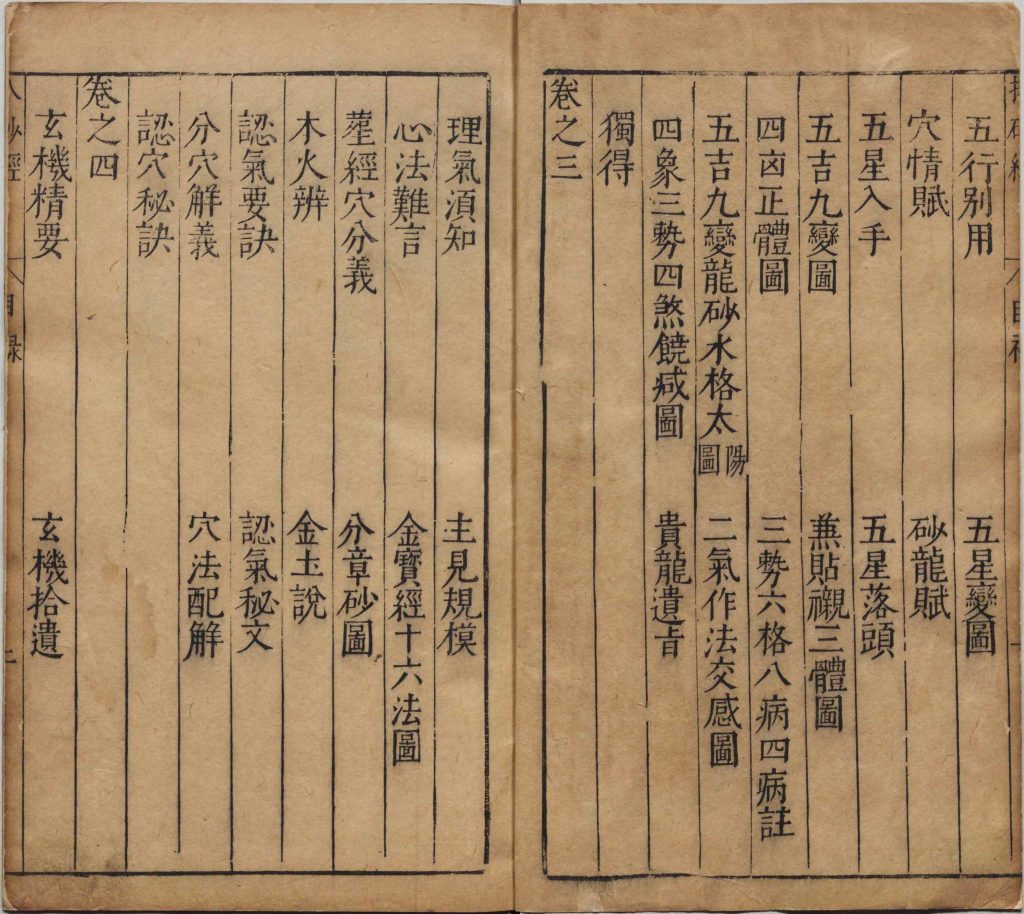 五行別用 五星變圖
穴情賦 砂龍賦
五星入手 五星落頭
五吉九變圖 兼貼襯三體圖
四凶正體圖 三勢六格八病四病註
五吉九變龍砂水格太陽圖 二氣作法交感圖
四象三勢四煞饒減圖 貴龍遺旨
獨得
卷之三
理氣須知 主見規模
心法難言 金寶經十六法圖
葬經穴分義 分章砂圖
木火辨 金土說
認氣要訣 認氣秘文
分穴解義 穴法配解
認穴秘訣
卷之四
玄機精要 玄機拾遺
砂經 目錄